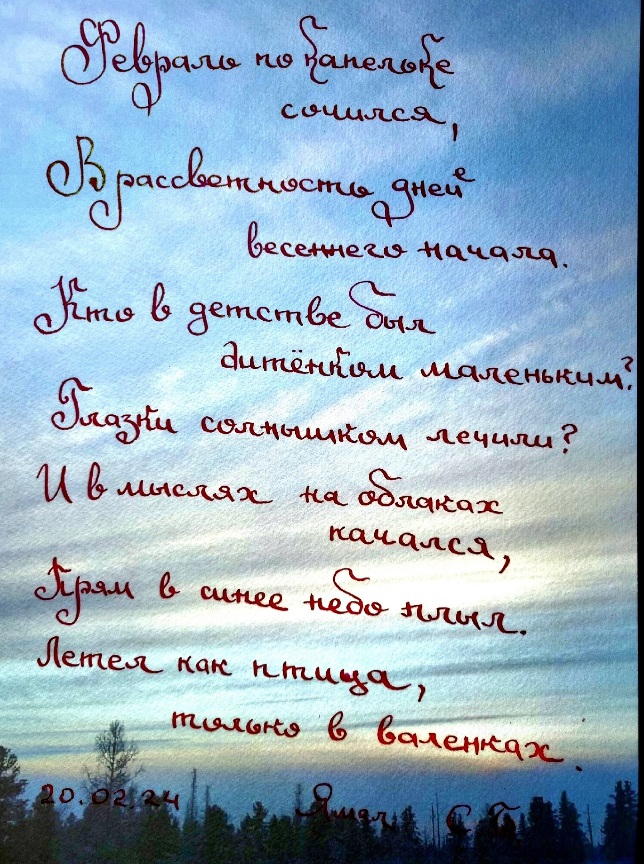 Февраль по капельке
сочился,
В рассветность дней
весеннего начала.
Кто в детстве был
дитёнком маленьким?
Глазки солнышком лечили?
И в мыслях на облаках
качался,
Прям в синее небо плыл.
Летел как птица,
только в валенках.
20.02.24 Ямал С.П.